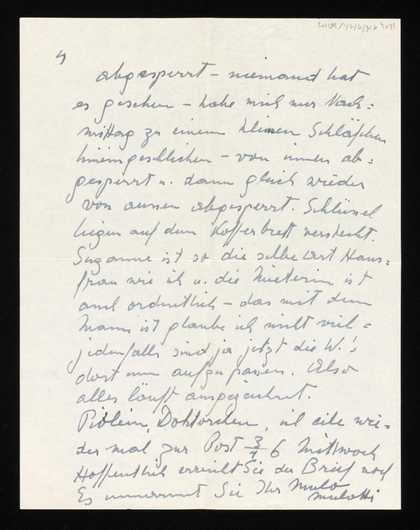 4
abgesperrt – niemand hat
es gesehen – habe mich nur Nach=
mittag zu einem kleinen Schläfchen
hineingeschlichen – von innen ab=
gesperrt u. dann gleich wieder
von aussen abgesperrt. Schlüssel
liegen auf dem Kofferbrett versteckt.
Suzanne ist so die selbe Art Haus=
frau wie ich u. die Mieterin ist
auch ordentlich – das mit dem
Mann ist glaube ich nicht viel –
jedenfalls sind ja jetzt die W.'s
dort um aufzupassen. Also
alles läuft ausgezeichnet.
Doktorchen, ich eile wie=
der mal zur Post 6 Mittwoch
Hoffentlich erreicht Sie der Brief noch
Es umarmt Sie Ihr Mulo
Mulotti